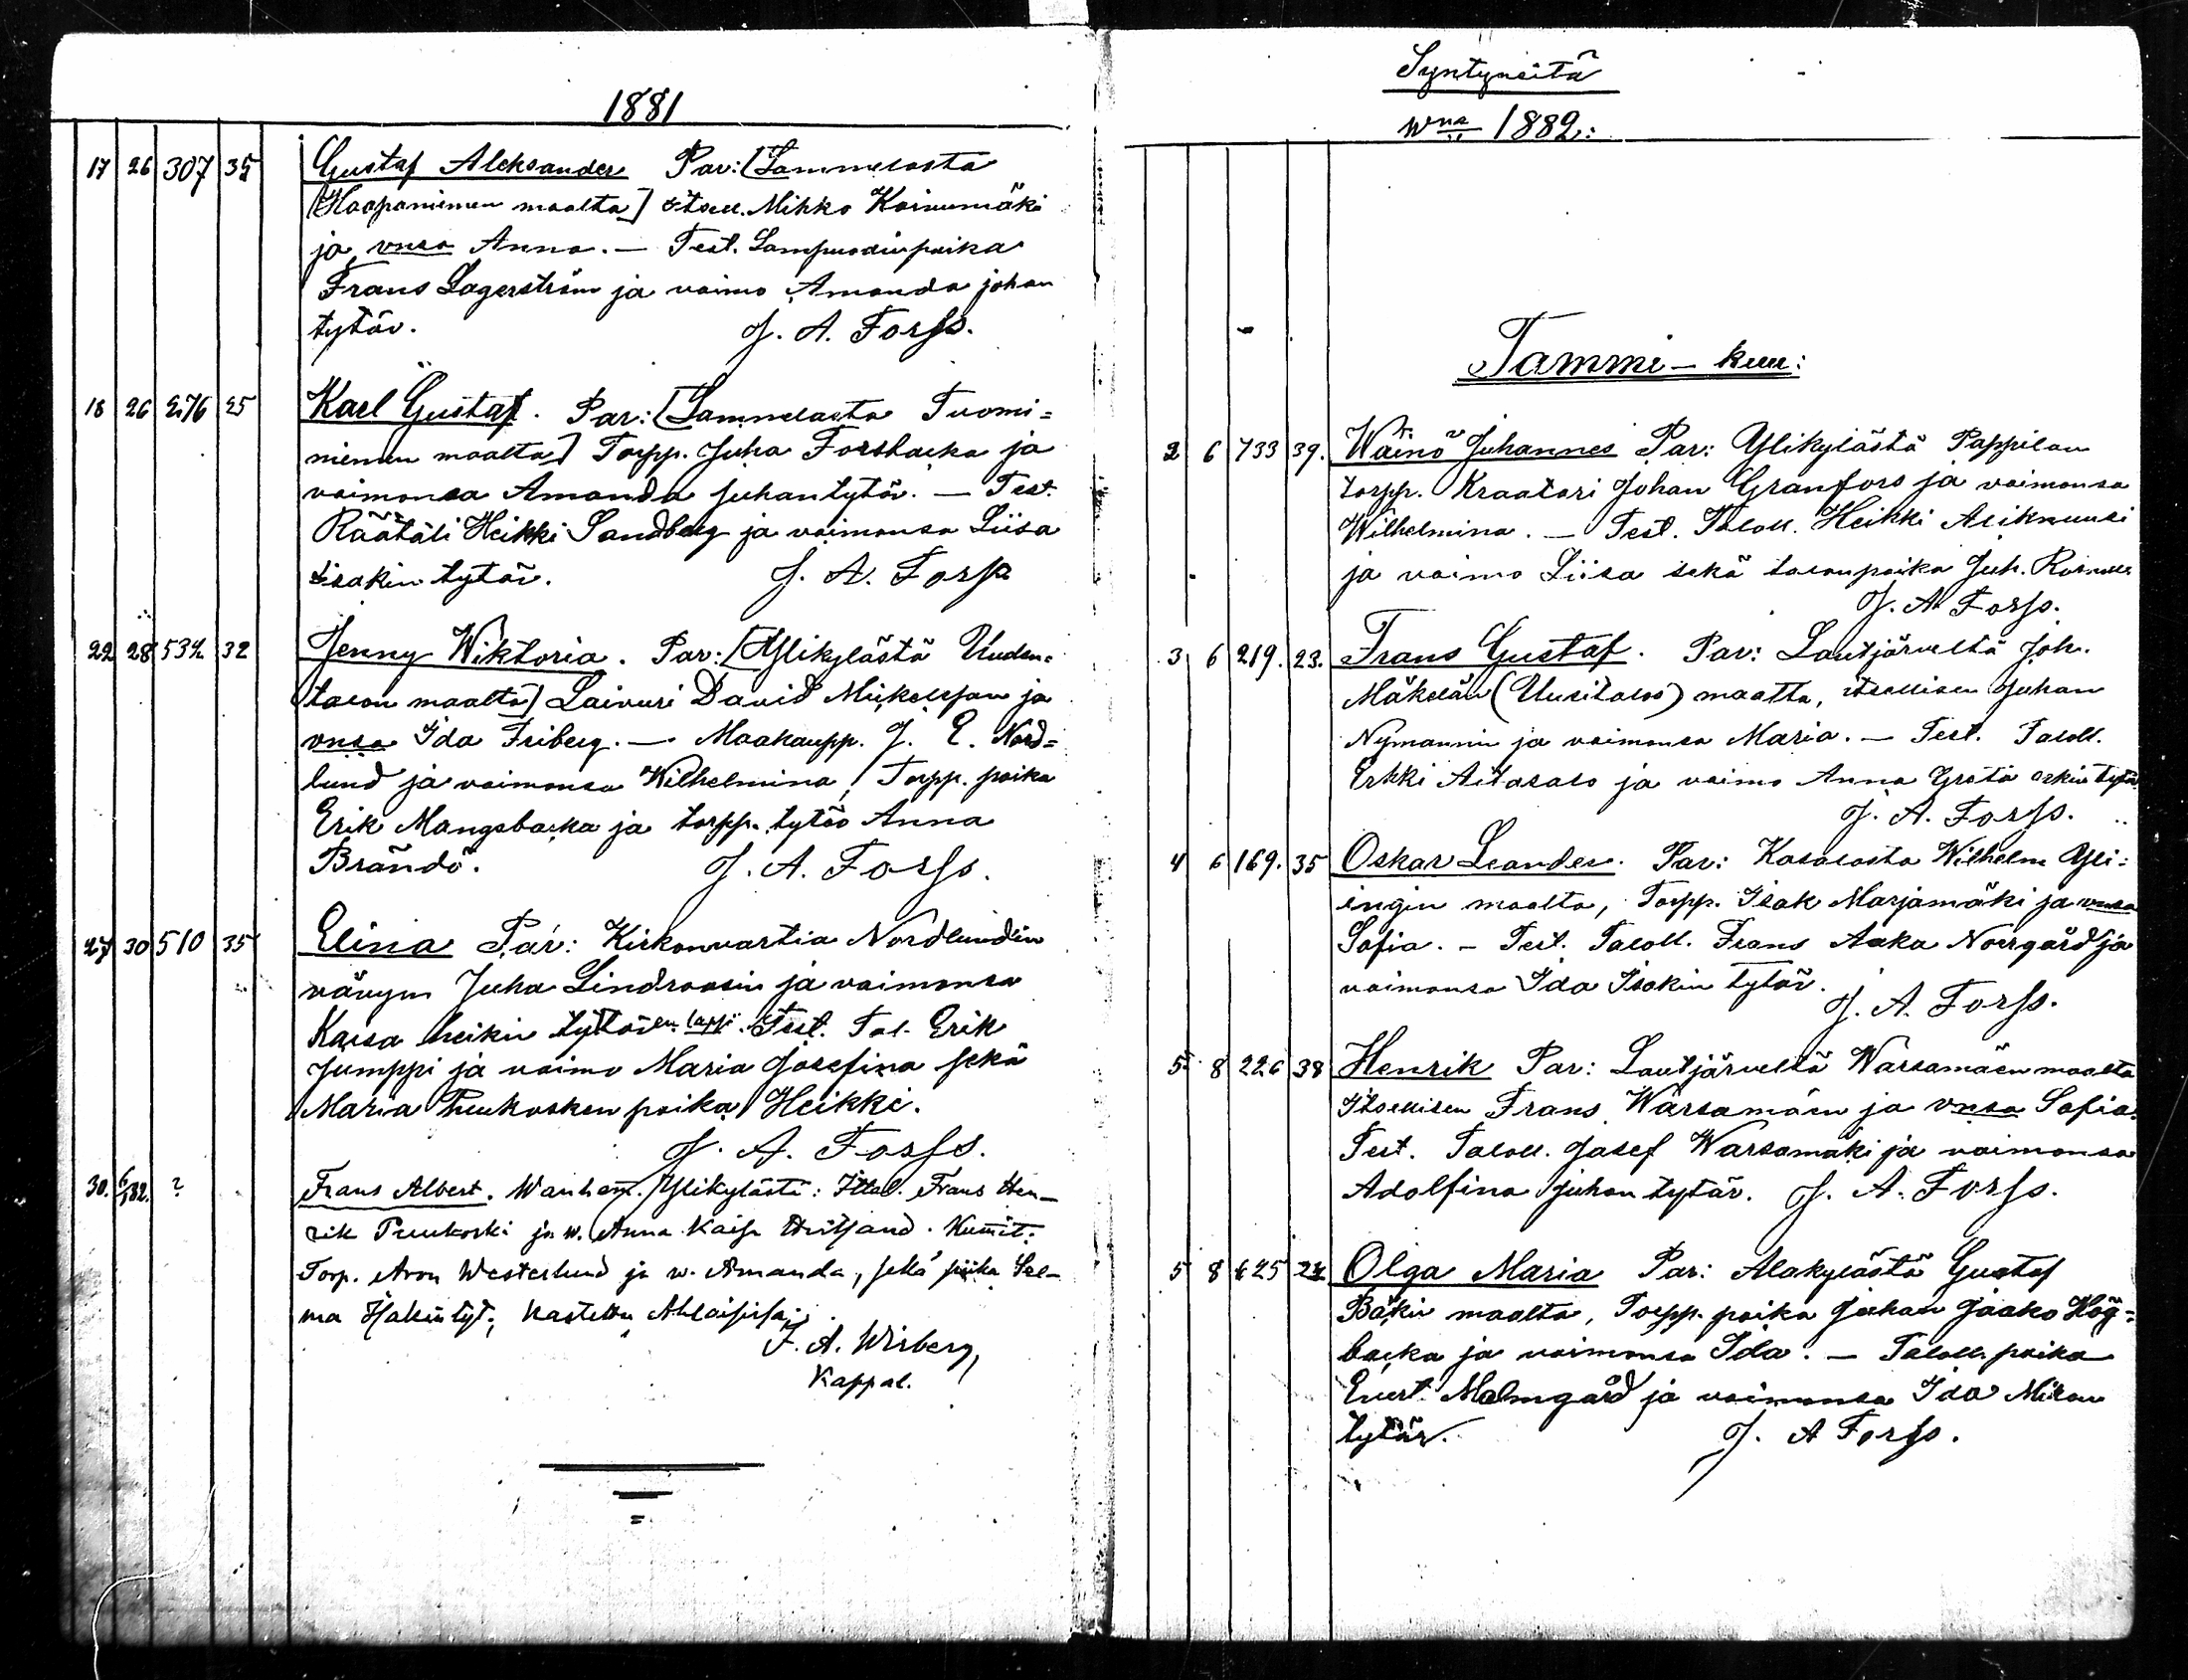 1881
17 26 307 35 Gustaf Aleksander Par: [Lammelasta
Haapaniemen maalta] itsell. Mikko Koivumäki
ja vnsa Anna. — Test. Lampuodinpoika
Frans Lagerström ja vaimo Amanda johan
tytär. J. A. Forss.
18 26 276 25 Karl Gustaf. Par: [Lammelasta Tuomi=
niemen maalta] Torpp. Juha Forsbacka ja
vaimonsa Amanda juhantytär. — Test.
Räätäli Heikki Sandberg ja vaimonsa Liisa
Iisakin tytär. J. A. Forss
22 28 532 32 Jenny Wiktoria. Par: [Ylikylästä Uuden=
talon maalta] Laivuri David Mickelsson ja
vnsa Ida Friberg. — Maakaupp. J. E. Nord=
lund ja vaimonsa Wilhelmina, Torpp. poika
Erik Mangsbacka ja torpp. tytöö Anna
Brändö. J. A. Forss.
27 30 510 35 Elina Par: Kirkonvartia Nordlundin
vävyn Juha Lindroosin ja vaimonsa
Kaisa heikin tytären lapsi. Test. Tal. Erik
Jumppi ja vaimo Maria Josefina sekä
Maria Puukosken poika Heikki.
J. A. Forss.
30. 6/1 82. ? Frans Albert. Wanhem. Ylikylästä: Ittal. Frans Hen-
rik Puukoski ja w. Anna Kaisa . Kummit:
Torp. Aron Westerlund ja w. Amanda, sekä piika Sel-
ma Isakintyt; kastettu Ahlaisissa;
F. A. Wirberg,
Kappal.
Syntyneitä
wna 1882:
Tammi-kuu:
2 6 733 39. Wäinö Juhannes Par: Ylikylästä Pappilan
torpp. Kraatari Johan Granfors ja vaimonsa
Wilhelmina. — Test. Taloll. Heikki Aliknuusi
ja vaimo Liisa sekä talonpoika Juh.
J. A. Forss.
3 6 219. 23. Frans Gustaf. Par: Lautjärveltä Joh.
Mäkelän (Uusitalos) maalta, itsellisen Juhan
Nymannin ja vaimonsa Maria. — Test. Taloll.
Erkki Aitasalo ja vaimo Anna Greta erkin tytär
J. A. Forss.
4 6 169. 35 Oskar Leander. Par: Kasalasta Wilhelm Yli=
ingin maalta, Torpp. Isak Marjamäki ja vnsa
Sofia. — Test. Taloll. Frans Aaka Norrgård ja
vaimonsa Ida Isakin tytär.
J. A. Forss.
5 8 226 38 Henrik Par: Lautjärveltä Warsamäen maalta
Itsellisen Frans Warsamäen ja vnsa Sofia.
Test. Taloll. Josef Warsamäki ja vaimonsa
Adolfina juhan tytär. J. A. Forss.
5 8 625 24 Olga Maria Par: Alakylästä Gustaf
Bäkin maalta, Torpp. poika Juhan Jaako Hög=
backa ja vaimonsa Ida. — Taloll. poika
Evert Malmgård ja vaimonsa Ida Mikon
tytär. J. A Forss.